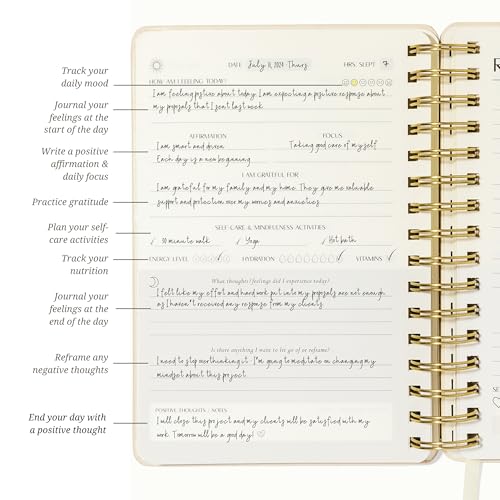 DATE: July 11, 2024 Thurs HRS. SLEPT: 7
Track your
daily mood
HOW AM I FEELING TODAY?
Journal your
feelings at the
start of the day
I am feeling positive about today. I am expecting a positive response about
my proposals that I sent last week.
Write a positive
affirmation &
daily focus
AFFIRMATION FOCUS
I am smart and driven. Taking good care of myself
Each day is a new beginning.
I AM GRATEFUL FOR
Practice gratitude
I am grateful for my family and my home. They give me valuable
support and protection over my worries and anxieties.
Plan your self-
care activities
SELF-CARE & MINDFULNESS ACTIVITIES
30 minute walk Yoga Hot bath
Track your
nutrition
ENERGY LEVEL HYDRATION VITAMINS
Journal your
feelings at the
end of the day
What thoughts/feelings did I experience today?
I felt like my effort and hard work put into my proposals are not enough
as I haven't received any response from my clients.
Reframe any
negative thoughts
Is there anything I want to let go of or reframe?
I need to stop overthinking it. I'm going to meditate on changing my
mindset about this project.
End your day with
a positive thought
POSITIVE THOUGHTS / NOTES
I will close this project and my clients will be satisfied with my
work. Tomorrow will be a good day!
R
SE